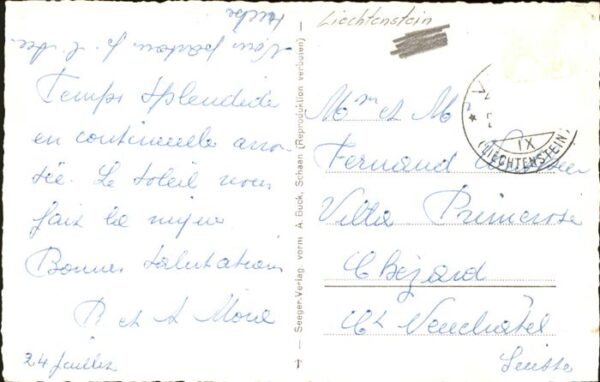 Liechtenstein
Temps splendide
en continuelle arro-
sée. Le soleil nous
fait la
Bonnes salutations
B et A
24 juillet
Seeger-Verlag vorm. A. Buck, Schaan (Reproduktion verboten)
LIECHTENSTEIN
Mme et M
Fernand
Villa Primerose
Chézard
Ct Neuchâtel
Suisse